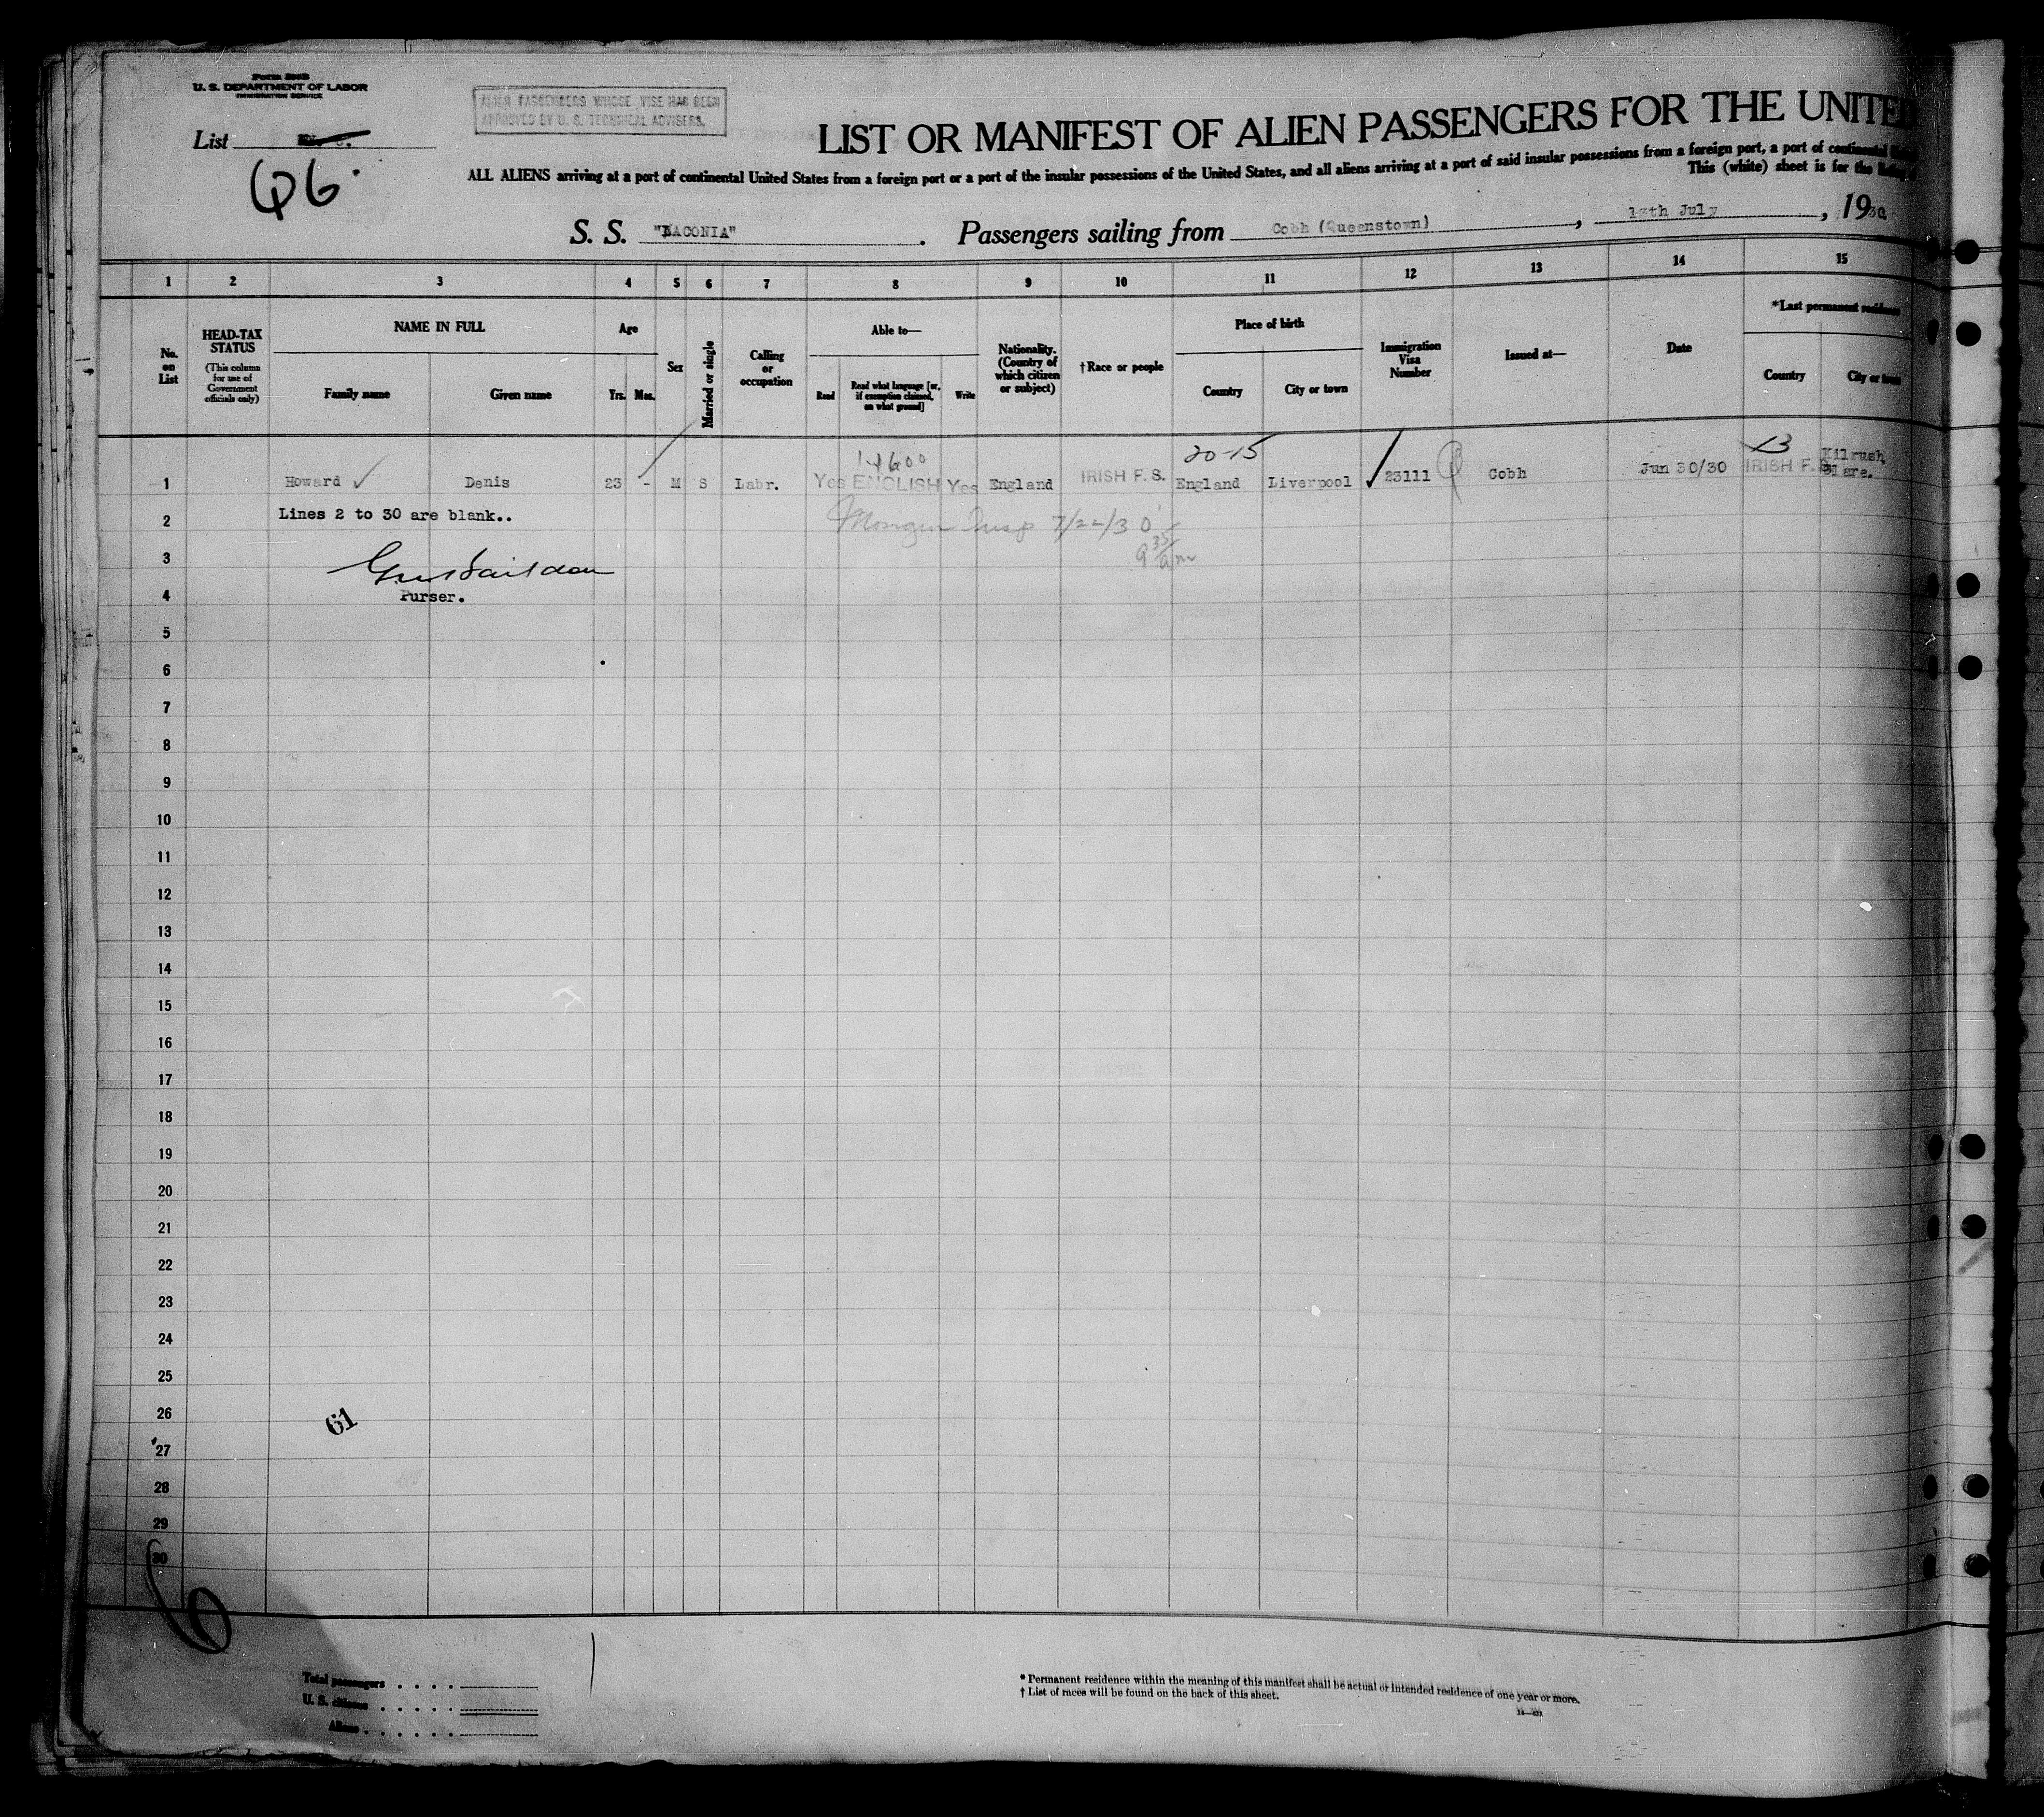 Form 500B
U. S. DEPARTMENT OF LABOR
IMMIGRATION SERVICE
ALIEN PASSENGERS WHOSE VISE HAS BEEN
APPROVED BY U. S. TECHNICAL ADVISERS.
List
LIST OR MANIFEST OF ALIEN PASSENGERS FOR THE UNITED
ALL ALIENS arriving at a port of continental United States from a foreign port or a port of the insular possessions of the United States, and all aliens arriving at a port of said insular possessions from a foreign port, a port of continental
This (white) sheet is for the listing
S. S. "LACONIA". Passengers sailing from Cobh (Queenstown), July, 1930
1 2 3 4 5 6 7 8 9 10 11 12 13 14 15
No. on List
HEAD-TAX STATUS
(This column for use of Government officials only)
NAME IN FULL
Family name Given name
Age
Yrs. Mos.
Sex
Married or single
Calling or occupation
Able to—
Read
Read what language [or, if exemption claimed, on what ground]
Write
Nationality. (Country of which citizen or subject)
†Race or people
Place of birth
Country City or town
Immigration Visa Number
Issued at—
Date
*Last permanent residence
Country City or town
20-15 13
1 Howard Denis 23 - M S Labr. Yes ENGLISH Yes England IRISH F. S. England Liverpool 23111 Cobh Jun 30/30 IRISH F. S. Kilrush Clare.
2 Lines 2 to 30 are blank.. Insp 7/22/30
3 9 35 am
4 Purser.
5
6
7
8
9
10
11
12
13
14
15
16
17
18
19
20
21
22
23
24
25
26 61
27
28
29
30
6
Total passengers
U. S. citizens
Aliens
* Permanent residence within the meaning of this manifest shall be actual or intended residence of one year or more.
† List of races will be found on the back of this sheet.